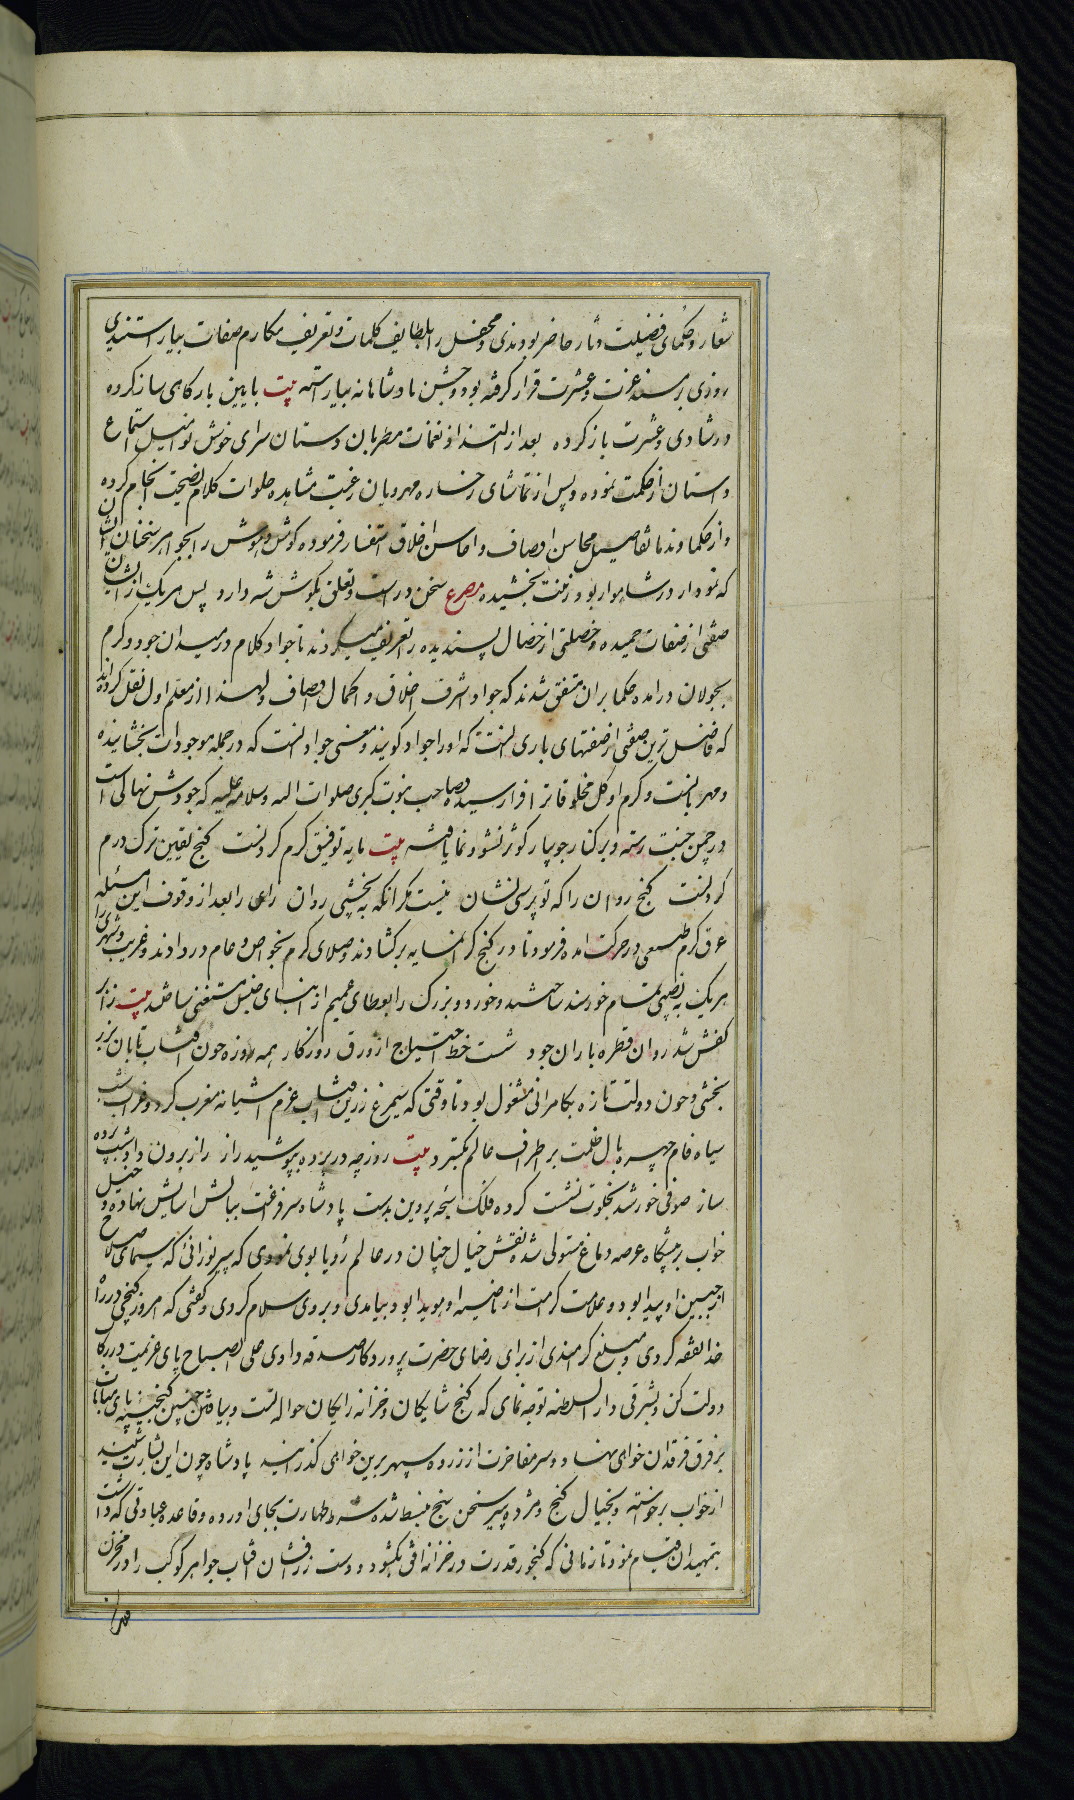 شعار و حکمای فضیلت دثار حاضر بودندی و محفل را بلطایف کلمات و تعریف مکارم صفات بیاراستندی
روزی بر مسند عزت و عشرت قرار گرفته بود و جشن پادشاهانه بیاراسته بیت بایین بارگاهی ساز کرده
در شادی و عشرت باز کرده بعد از التذاذ نغمات مطربان دستان سرای خوش نوا میل استماع
داستان از حکمت نموده و پس از تماشای رخساره مهرویان رغبت مشاهده جلوات کلام نصیحت انجام کرده
و از حکما و ندما تفاصیل محاسن اوصاف و احاسن اخلاق استفسار فرموده گوش هوش را بجواهر سخنان ایشان
که نمودار در شاهوار بود زینت بخشیده مصرع سخن درست و تعلق بگوش شه دارد پس هر یک از ایشان
صفتی از صفات حمیده و خصلتی از خصال پسندیده را تعریف میکردند تا جواد کلام در میدان جود و کرم
بجولان درامده حکما بران متفق شدند که جود اشرف اخلاق و اکمل اوصاف و لهذا از معلم اول نقل کرده‌اند
که فاضل ترین صفتی از صفتهای باری انست که او را جواد گویند و معنی جواد انست که در جمله موجودات بخشاینده
و مهربانست و کرم او کل مخلوقاترا فرا رسیده و صاحب نبوت کبری صلوات الله و سلامه علیه که جود نهالی است
در چمن جنت رسته و بر کنار جویبار کوثر نشو و نما یافته بیت مایه توفیق کرم کردنست گنج یقین ترک درم
کردنست گنج روان را که تو پرسی نشان نیست مگر انکه ببخشی روان رای را بعد از وقوف این مسئله
عرق کرم طبیعی در حرکت امده فرمود تا در گنج گرانمایه برگشادند و صلای کرم بخواص و عام در دادند و غریب و شهری را
هر یک به نصیبی تمام خورسند ساختند و خورد و بزرگ را بعطای عمیم از ابنای جنس مستغنی ساخت بیت از ابر
کفش شد روان قطره باران جود شست خط احتیاج از ورق روزگار همه روزه چون افتاب تابان بزر
بخشی و چون دولت تازه بکامرانی مشغول بود تا وقتی که سیمرغ زرین افتاب عزم اشیانه مغرب کرد و غراب شب
سیاه فام چهره بال ظلمت بر اطراف عالم بگسترد بیت روز چه در پرده بپوشید راز راز برون داد شب پرده
ساز صوفی خورشید بخلوت نشست کرده فلک سبحه پروین بدست پادشاه سر فراغت ببالش اسایش نهاده و خیل
خواب بر پیشگاه عرصه دماغ مستولی شده نقش خیال چنان در عالم رویا بوی نمودی که پیر نورانی که سیمای صلاح
از جبین او پیدا بود و علامت کرامت از ناصیه او هویدا بود بیامدی و بر وی سلام کردی و گفتی که امروز گنجی در راه
خدا نفقه کردی و مبلغ گرامندی از برای رضای حضرت پروردگار صدقه دادی علی الصباح پای عزیمت در رکاب
دولت کن و بشرقی دار السلطنه توجه نمای که گنج شایگان و خزانه رایگان حواله تست و بیافتن چنین گنجی پای مباهات
بر فرق فرقدان خواهی نهاد و سر مفاخرت از ذروه سپهر برین خواهی گذرانید پادشاه چون این بشارت شنید
از خواب برخاسته و بخیال گنج و مژده پیر سخن سنج منبسط شده شرط طهارت بجای اورده و قاعده عبادتی که داشت
بتمهید ان قیام نمود تا زمانی که گنجور قدرت در خزانه افق بگشود و دست زرفشان افتاب جواهر کواکب را در مخزن